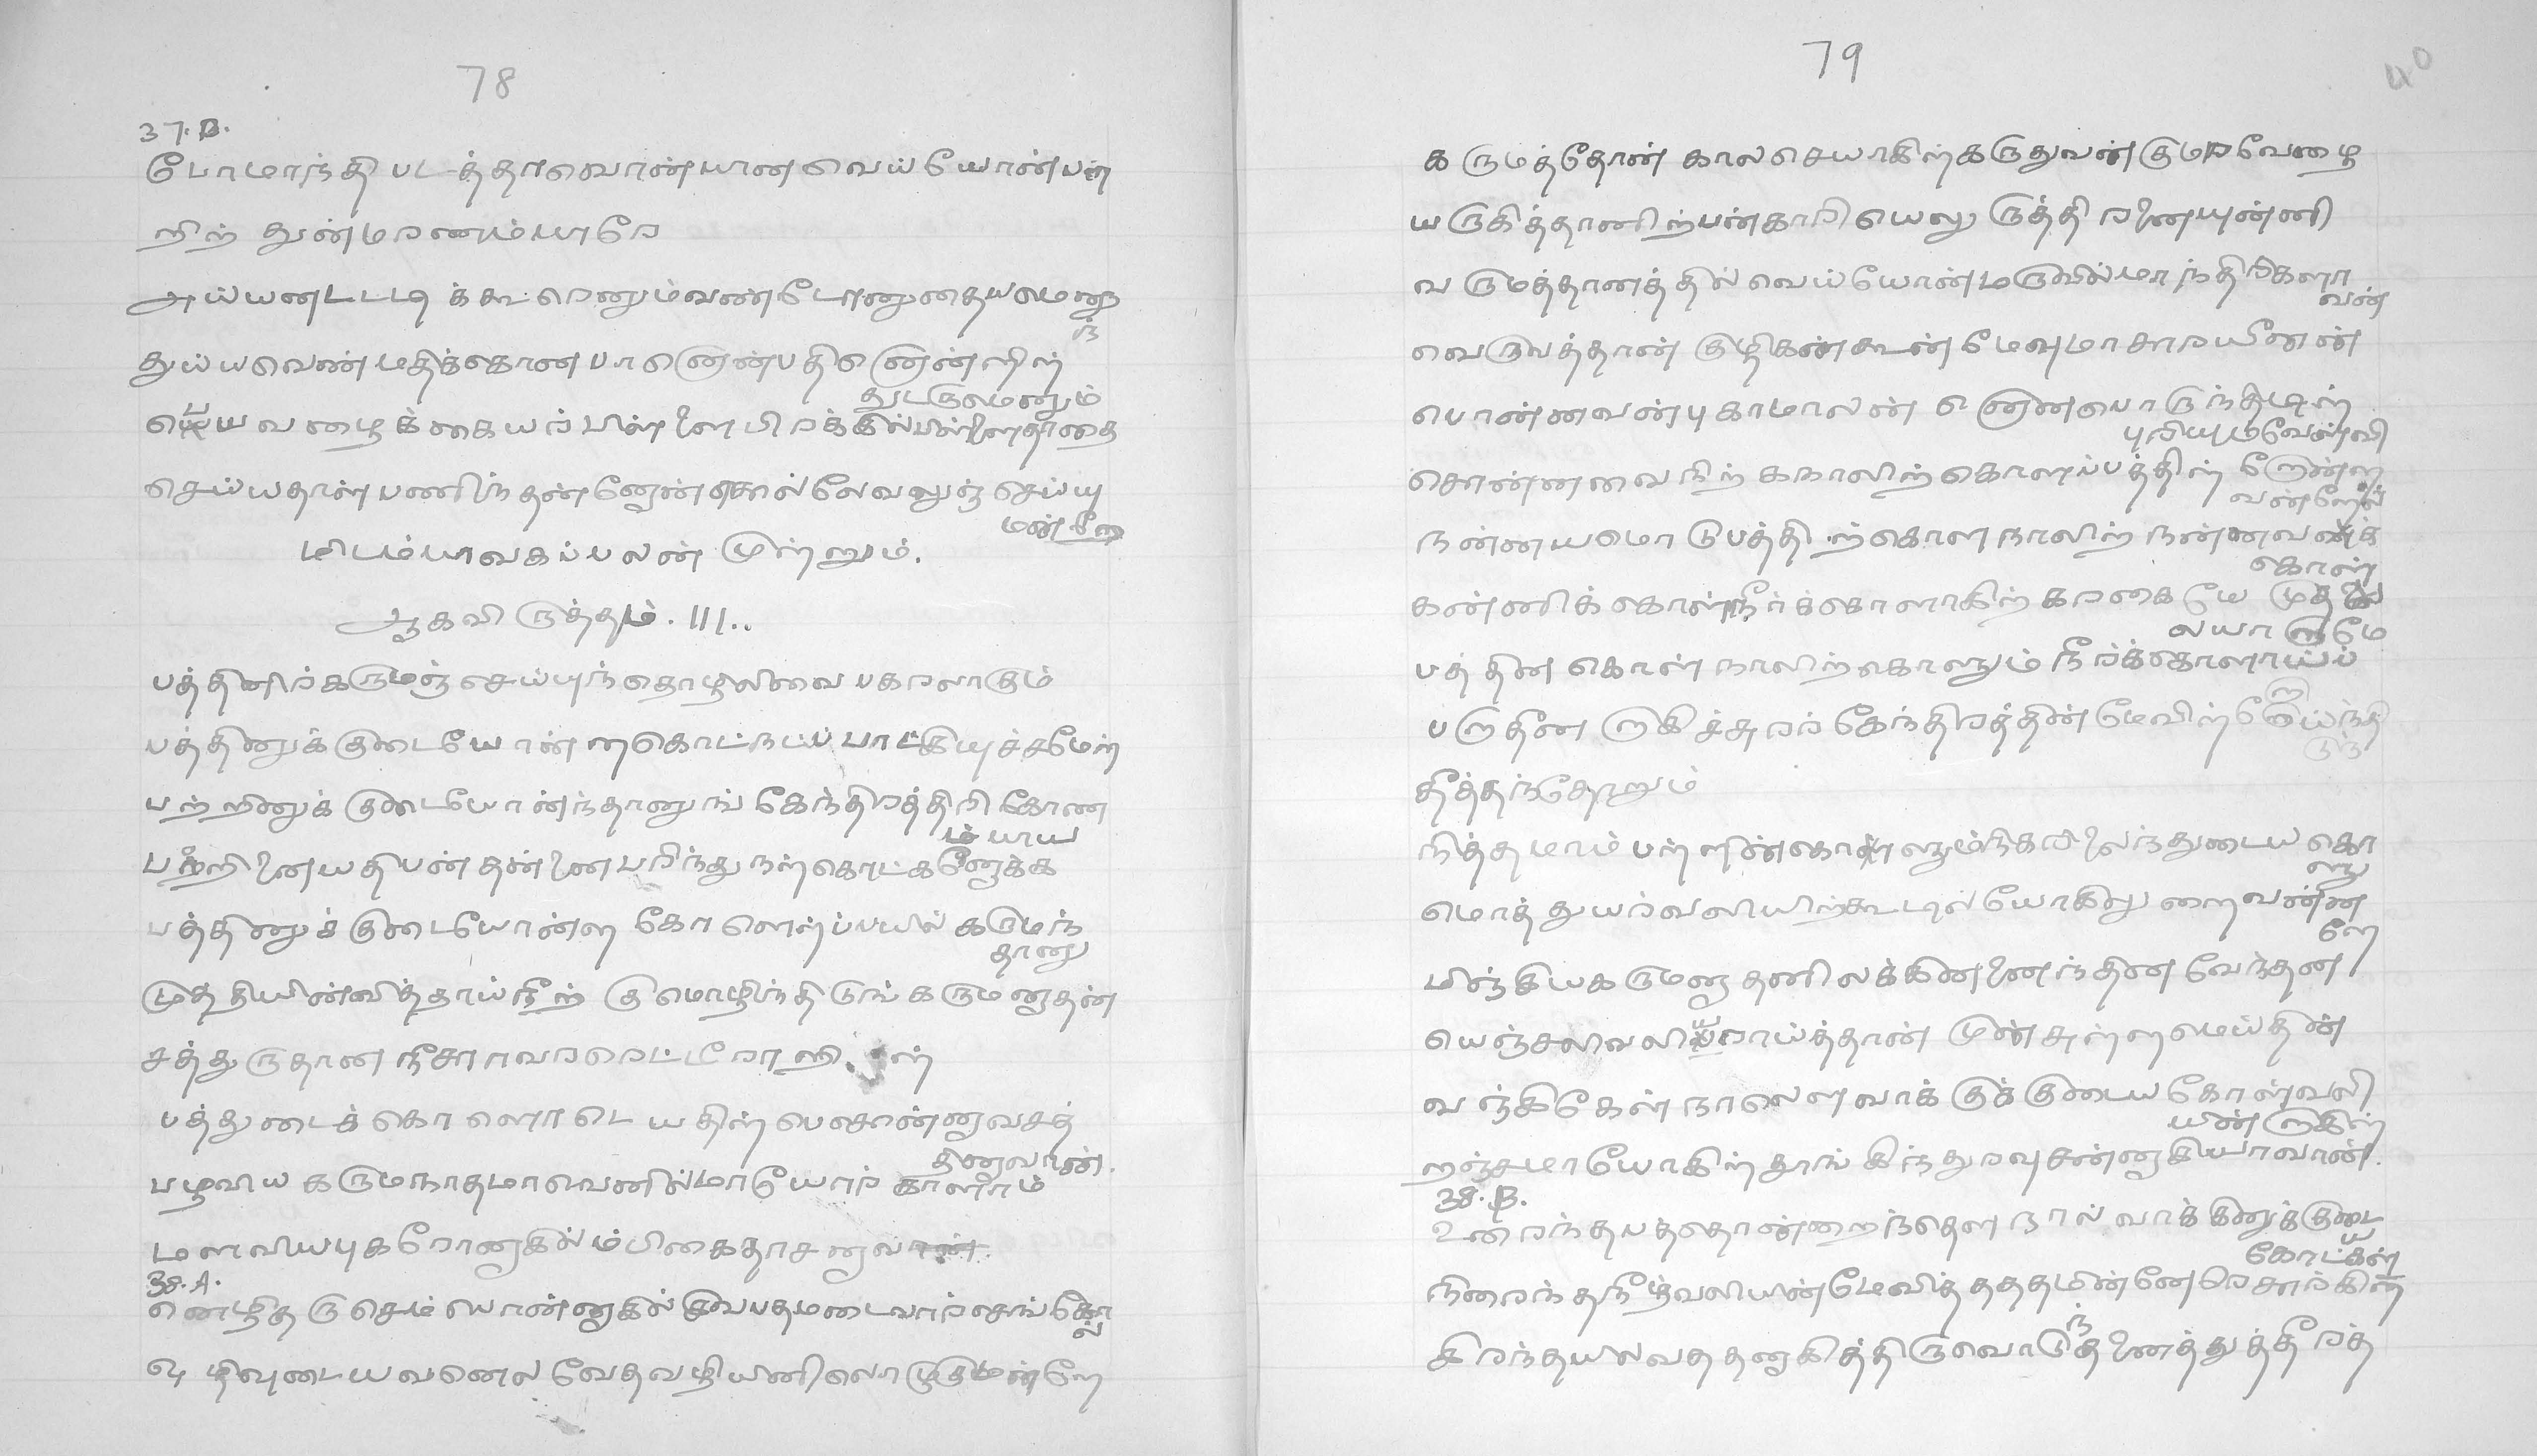 78
37.B.
போமாந்தி படத்தாவொன் யான வெய்யோன்பன்
றிற் துன்மரணம்யாரே
அய்யனட்டடிக்கூறெனும்வண்டோனுதையமெனு
ந்
துய்யவெண்மதிக்கோன்பானொன்பதினொன்றில்
துட்டருமெனும்
பெய்வளைக்கையர் பிள்ளை பிறக்கில்பிள்ளைதாதை
செய்யதாள்பணிந்தன்னேன் சொல்லேவலுஞ் செய்யு
மன்றே
மிடம்பாவகப்பலன் முற்றும்.
ஆகவிருத்தம். 111..
பத்தினிற்கருமஞ் செய்யுந்தொழிலிவை பகரலாகும்
பத்தினுக்குடையோன் னகொட்நட்ப்பாட்கியுச்சமேற்
பற்றினுக்குடையோன்ந்தானுங் கேந்திரத்திரிகோண
ம்யாய
பற்றினையதிபன் தன்னை பரிந்து நற்கொட்கனோக்க
பத்தினுக்குடையோன்ன கோளெற்ப்பயில் கருமந்
தானு
முத்தியின்வித்தாய்நிற்குமொழிந்திடுங் கருமனுதன்
சத்துருதான நீசராவரரெட்டீராறில்
பத்துடைக் கொளொடெயதிற் பெசொன்னவசத்
தினவான்.
பழவிய கருமநாதமாவெனில்மாயோர்காளாம்
மளவியபுகரோனுகில்ம்பிகைதாசனுவான்
38.A.
னெழிதரு செம்பொன்னுகில் சிவபதமடைவார்செங்கோ
ல்
ஒழிவுடையவனெல் வேதவழியினிலொழுகுமன்றே
79
40
கருமத்தோன் காலசெயாகிற்கருதுவன்குமரவேழை
யருகித்தானிற்பன்காரியெலுருத்திரனையுன்னி
வருமத்தானத்தில் வெய்யோன்மருவில்மாந்திரிகளா
வன்
வெருவத்தான் குழிகன்கூன் மேவுமாசாரயீனன்
பொன்னவன்புகாமாலின் னெனபொருந்திடில்
புரியுமவேள்வி
சொன்னவை நிற்கநாலிற்கொளப்பத்தில் றோன்ற
வன்றேல்
நன்னயமொடுபத்திற்கொளநாலிற் நன்னவனக்
கொள்
கன்னிக்கொள்நீர்க்கொளாகிற் கரகையே முத
லயாளுமே
பத்தின கொள் நாலிற்கொளும் நீர்க்கொளாய்ப்
பருதின ருகிச்சுரர் கேந்திரத்தின் மேவிற்
தீத்தந்தோறும்
நித்தமாம் பற்றின்கொள் ளும்நிகரிலைந்துடைய கொ
ளு
மொத்துயர்வலியிற்கூடில் யோகினுறைவன்ன
ளே
மிந்கியகருமனுதனிலக்கினனைந்தின வேந்தன
யெஞ்சலிவலியராய்த்தான் முன்சுள்ளமெய்தின்
வந்கிகேள் நாலௌவாக்குக்குடைய கோள்வலி
யின்ருகில்
றஞ்சமாயோகிற் தூங்கிந்துரவுசன்னுகியாவான்.
38.B.
உறைந்தபத்தொண்றைந்தௌ நால் வாக்கினுக்குடை
ய
கோட்கள்
நிறைந்தநீழ்வலியின்மேவித் தததமின்னேரெசூர்கில்
சிறந்தயிலவத்தனுகித்திருவொடுந்தனைத்துத்தீரத்